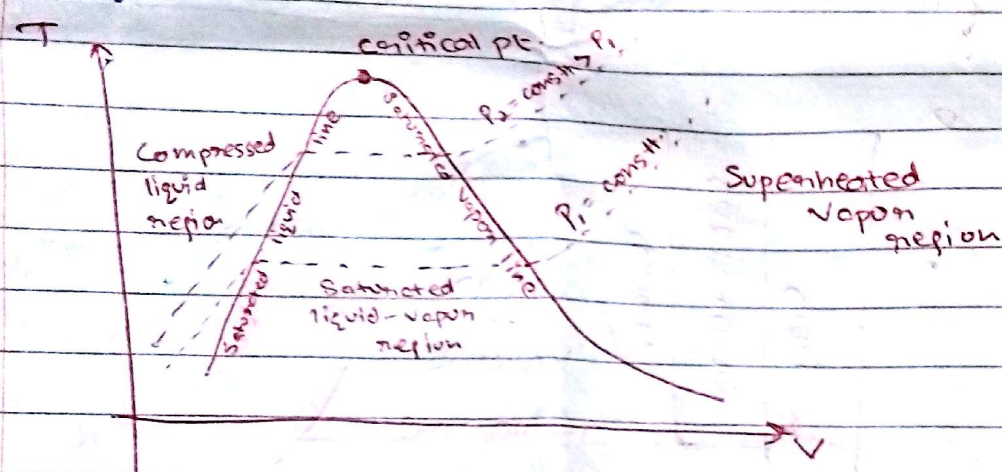 T
critical pt.
P₂ = const. > P₁
Compressed
liquid
region
Saturated liquid line
Saturated vapor line
P₁ = const.
Superheated
vapor
region
Saturated
liquid-vapor
region
V